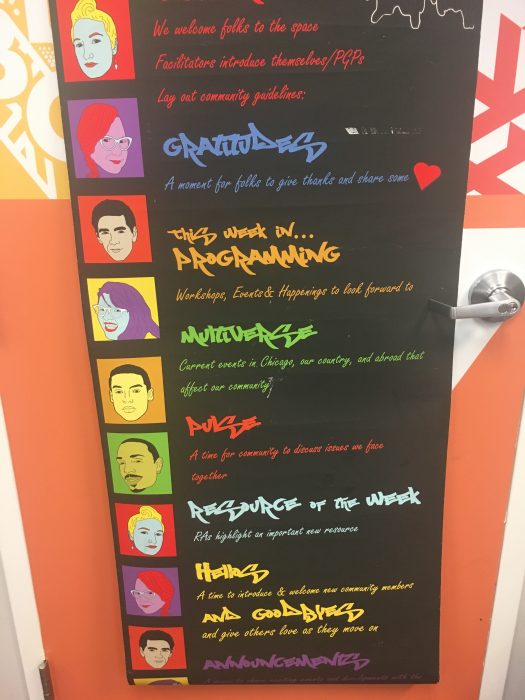 We welcome folks to the space
Facilitators introduce themselves/PGPs
Lay out community guidelines:
GRATITUDES
A moment for folks to give thanks and share some
THIS WEEK IN...
PROGRAMMING
Workshops, Events & Happenings to look forward to
MULTIVERSE
Current events in Chicago, our country, and abroad that
affect our community
PULSE
A time for community to discuss issues we face
together
RESOURCE OF THE WEEK
RAs highlight an important new resource
HELLOS
A time to introduce & welcome new community members
AND GOODBYES
and give others love as they move on
ANNOUNCEMENTS